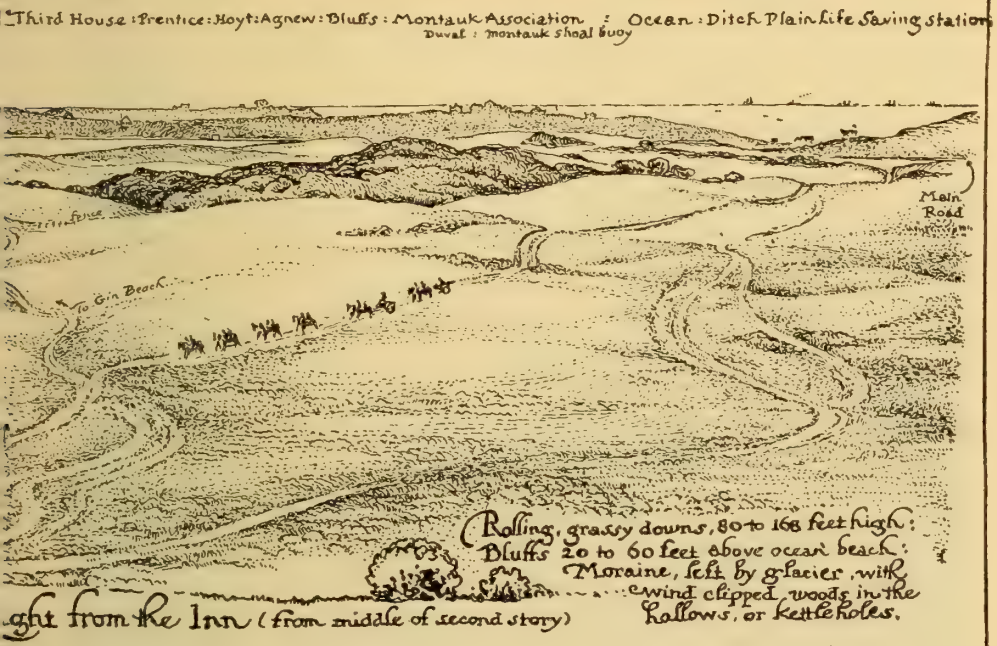 Third House : Prentice : Hoyt : Agnew : Bluffs : Montauk Association : Ocean : Ditch Plain Life Saving station
Duval : Montauk Shoal buoy
Main
Road
fence
to Gin Beach
Rolling, grassy downs, 80 to 168 feet high :
Bluffs 20 to 60 feet above ocean beach :
Moraine, left by glacier, with
wind clipped woods in the
hollows, or kettle holes.
ght from the Inn (from middle of second story)